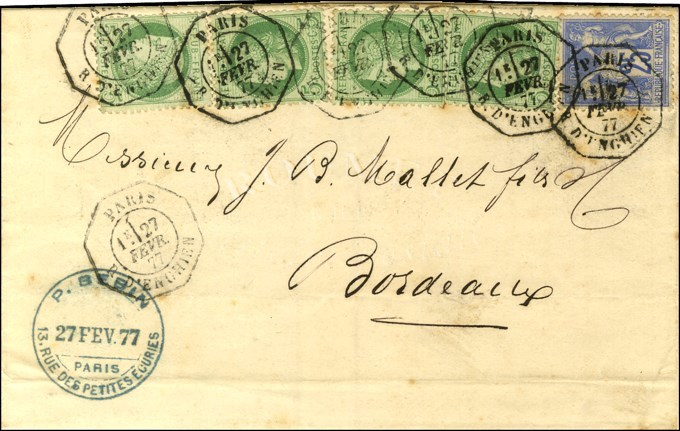 PARIS
1E/27
FEVR.
77
R. D'ENGHIEN
PARIS
1E/27
FEVR.
77
R. D'ENGHIEN
27
FEVR.
77
PARIS
1E/27
FEVR.
77
R. D'ENGHIEN
PARIS
1E/27
FEVR.
77
R. D'ENGHIEN
REPUBLIQUE FRANÇAISE
Messieurs J. B. Mallet fils
Bordeaux
PARIS
1E/27
FEVR.
77
R. D'ENGHIEN
P. BEBIN
27 FEV. 77
PARIS
13, RUE DES PETITES ECURIES